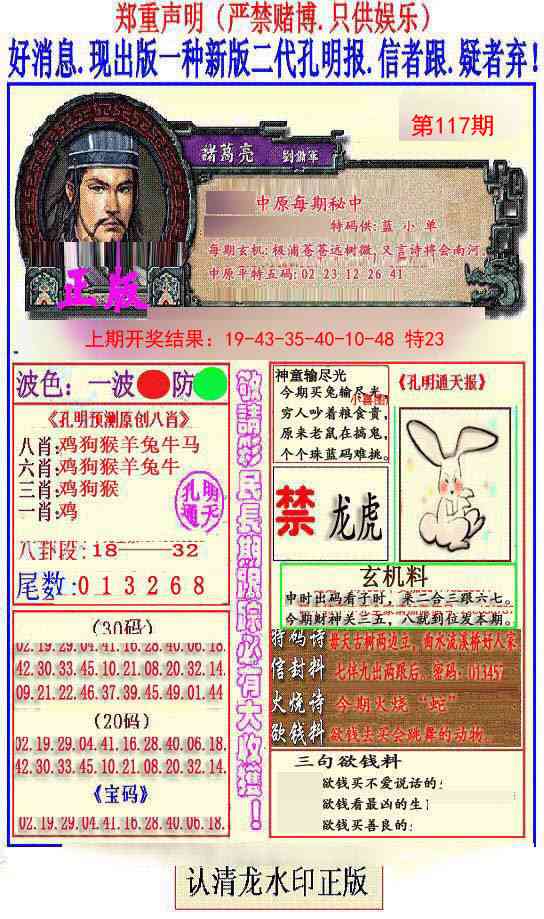 郑重声明（严禁赌博.只供娱乐）
好消息.现出版一种新版二代孔明报.信者跟.疑者弃！
第117期
諸葛亮 劉備軍
中原每期秘中
特码供:蓝 小 单
每期玄机:极浦苍苍远树微,又言诗将会南河.
中原平特五码:02 23 12 26 41
正版
上期开奖结果：19-43-35-40-10-48 特23
波色：一波 防
《孔明预测原创八肖》
八肖:鸡狗猴羊兔牛马
六肖:鸡狗猴羊兔牛
三肖:鸡狗猴
一肖:鸡
孔明
通天
八卦段:18——32
尾数:013268
(30码)
02.19.29.04.41.16.28.40.06.18.
42.30.33.45.10.21.08.20.32.14.
09.21.22.46.37.39.45.49.01.44
(20码)
02.19.29.04.41.16.28.40.06.18.
42.30.33.45.10.21.08.20.32.14.
《宝码》
02.19.29.04.41.16.28.40.06.18.
敬請彩民長期跟踪必有大收獲！
神童输尽光
今期买兔输尽光,
穷人吵着粮食贵,
原来老鼠在搞鬼,
个个珠蓝码难挑。
《孔明通天报》
禁 龙虎
玄机料
申时出码看子时，来二合三跟六七。
今期财神关三五，八就到位发本期。
特码诗 每天古树两边立，曲水流溪桥好人家
信封料 七伴九出两跟后. 密码：013457
火烧诗 今期火烧“蛇”
欲钱料 欲钱去买会跳舞的动物.
三句欲钱料
欲钱买不爱说话的:
欲钱看最凶的生
欲钱买善良的:
认清龙水印正版